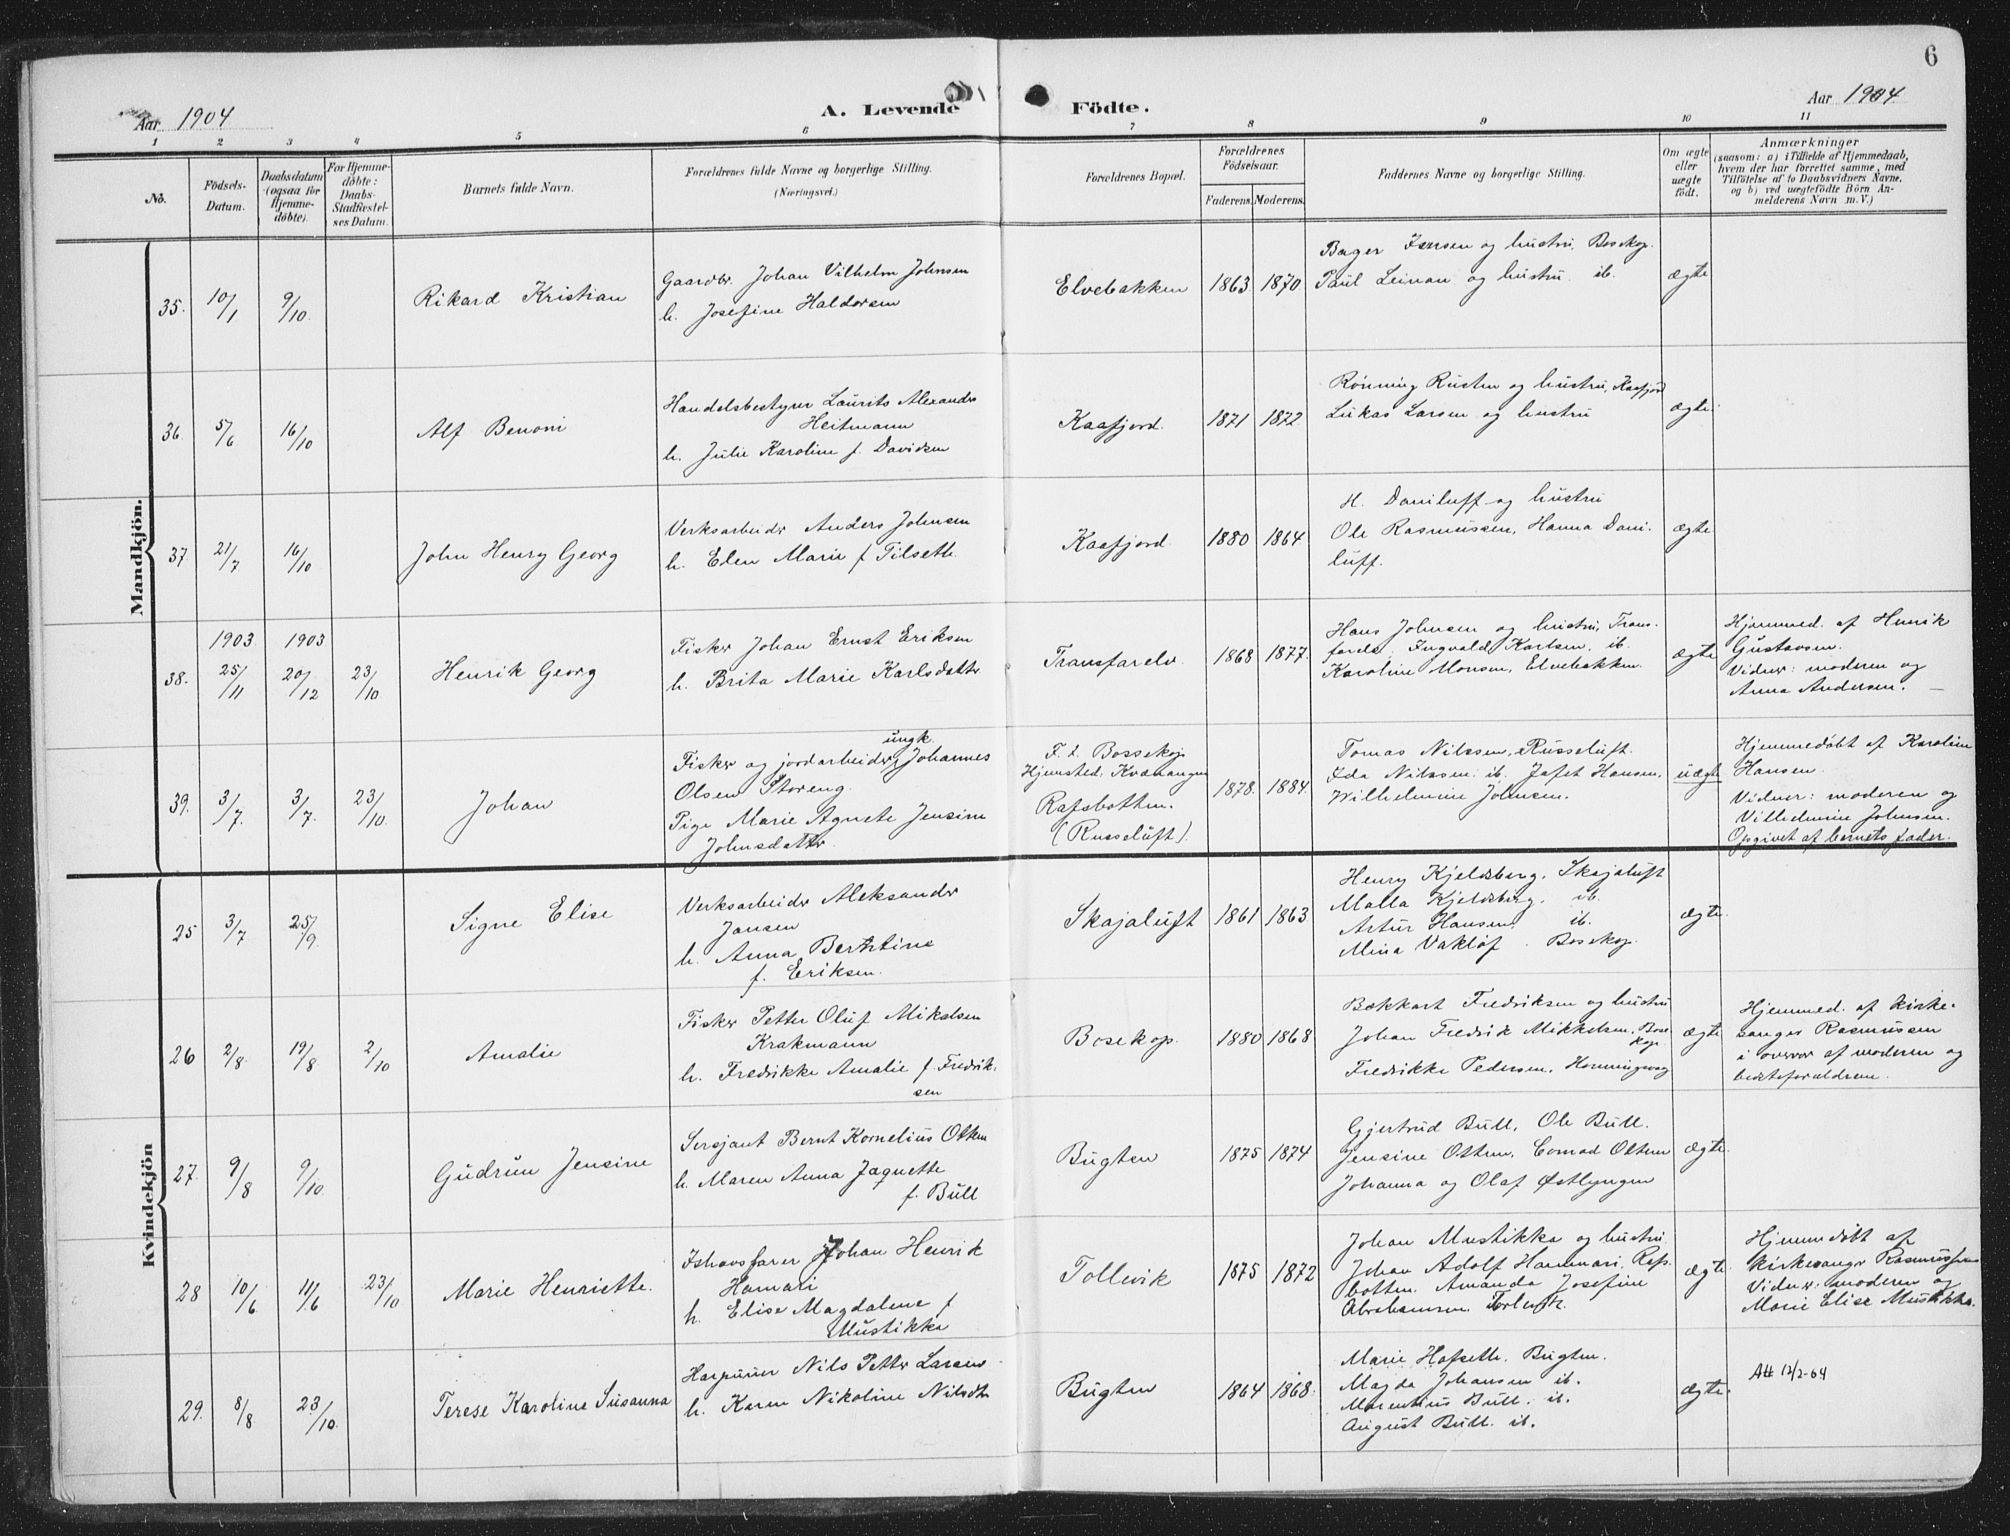 6
Aar 1904
A. Levende Födte.
Aar 1904
1 2 3 4 5 6 7 8 9 10 11
No.
Födsels-Datum.
Daabsdatum (ogsaa for Hjemme-døbte).
For Hjemme-døbte: Daabs-Stadfæstel-ses Datum.
Barnets fulde Navn.
Forældrenes fulde Navne og borgerlige Stilling.
(Næringsvei.)
Forældrenes Bopæl.
Forældrenes Födselsaar.
Faderens. Moderens.
Faddernes Navne og borgerlige Stilling.
Om ægte eller uægte födt.
Anmærkninger
(saasom: a) i Tilfælde af Hjemmedaab,
hvem der har forrettet samme, med
Tilföielse af to Daabsvidners Navne,
og b) ved uægtefödte Börn An-
melderens Navn m. V.)
Mandkjön.
35. 10/1 9/10 Rikard Kristian
Gaardbr. Johan Vilhelm Johnsen
h. Josefine Haldorsen
Elvebakken 1863 1870
Bager Jensen og hustru, Bosekop.
Paul Leinan og hustru ib.
ægte
36. 5/6 16/10 Alf Benoni
Handelsbestyrer Laurits Alexander
Heitmann
h. Julie Karoline f. Davidsen
Kaafjord. 1871 1872
Rönning Rusten og hustru, Kaafjord
Lukas Larsen og hustru
ægte.
37. 21/7 16/10 John Henry Georg
Verksarbeider Anders Johnsen
h. Elen Marie f Tilseth.
Kaafjord. 1880 1864
H. Daniluff og hustru
Ole Rasmussen, Hanna Dani-
luff.
ægte
1903 1903
38. 25/11 20/12 23/10 Henrik Georg
Fisker Johan Ernst Eriksen
h. Brita Marie Karlsdatter
Transfarelv. 1868 1877.
Hans Johnsen og hustru, Trans-
farelv. Ingvald Karlsen, ib.
Karoline Monsen, Elvebakken.
ægte
Hjemmed. af Henrik
Gustavsen.
Vidner: moderen og
Anna Andersen.
39. 3/7. 3/7. 23/10. Johan
ungk.
Fisker og jordarbeider, Johannes
Olsen Storeng.
Pige Marie Agnete Jensine
Johnsdatter
F. t. Bossekop
Hjemsted: Kvænangen
Rafsbotten.
(Russeluft).
1878. 1884.
Tomas Nilssen, Russeluft.
Ida Nilssen ib. Jafet Hansen,
Wilhelmine Johnsen.
uægte
Hjemmedöbt af Karoline
Hansen.
Vidner: moderen og
Villedmine Johnsen.
Opgivet af barnets fader.
Kvindekjön
25 3/7 25/9. Signe Elise
Verksarbeider Aleksander
Jansen
h. Anna Berntine
f. Eriksen.
Skajaluft 1861 1863
Henry Kjeldsberg, Skajaluft
Malla Kjeldsberg. ib.
Artur Hansen, ib.
Mina Vaklöf. Bosekop.
ægte.
26 2/8. 19/8 2/10 Amalie
Fisker Petter Oluf Mikalsen
Krakmann
h. Fredrikke Amalie f. Fredrik-
sen
Bosekop. 1880 1868
Bækkart Fredriksen og hustru
Johan Fredrik Mikkelsen, Bose-
kop.
Fredrikke Pedersen, Honningsvag
ægte
Hjemmed. af kirke-
sanger Rasmussen
i overvær af moderen og
bedsteforældrene.
27. 9/8 9/10 Gudrun Jensine
Sersjant Bernt Kornelius Olsen
h. Maren Anna Jaquette
f. Bull
Bugten 1875 1874
Gjertrud Bull, Ole Bull.
Jensine Ottesen, Conrad Ottesen
Johanna og Olaf Østlyngen
ægte.
28 10/6 11/6 23/10 Marie Henriette.
Ishavsfarer Johan Henrik
Hamari
h. Elise Magdalene f
Mustikka
Tollevik 1875 1872
Johan Mustikka og hustru
Johan Adolf Hammari, Rafs-
botten. Amanda Josefine
Abrahamsen,
ægte
Hjemmedöbt af
kirkesanger Rasmussen
Vidner: moderen og
Marie Elise Mustikka.
29. 8/8 23/10. Terese Karoline Susanna
Harpuner Nils Petter Larsen
h. Karen Nikoline Nilsdtr
Bugten 1864 1868.
Marie Hofseth. Bugten.
Magda Johansen ib.
Marentius Bull. ib.
August Bull. ib.
ægte.
Att 12/2-64